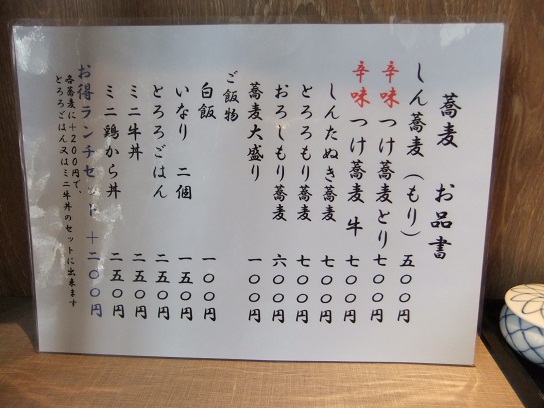 蕎麦 お品書
しん蕎麦(もり) 五〇〇円
辛味つけ蕎麦とり 七〇〇円
辛味つけ蕎麦 牛 七〇〇円
しんたぬき蕎麦 七〇〇円
とろろもり蕎麦 七〇〇円
おろしもり蕎麦 六〇〇円
蕎麦大盛り 一〇〇円
ご飯物
白飯 一〇〇円
いなり 二個 一五〇円
とろろごはん 二五〇円
ミニ牛丼 二五〇円
ミニ鶏から丼 二五〇円
お得ランチセット +二〇〇円
各蕎麦に+200円で、
とろろごはん又はミニ牛丼のセットに出来ます